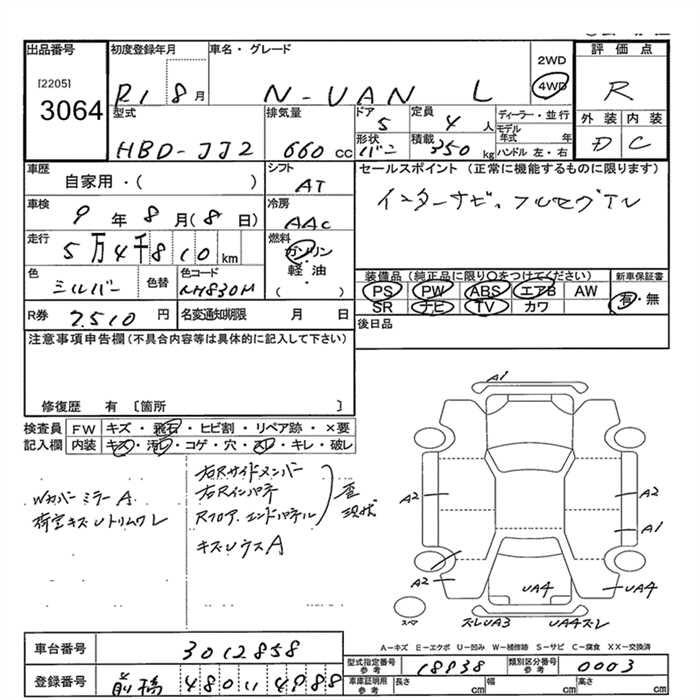 出品番号
[2205]
3064
初度登録年月
R1 8月
車名・グレード
N-VAN L
2WD
4WD
評価点
R
外装 内装
D C
型式
HBD-JJ2
排気量
660 cc
ドア
5
定員
4 人
形状
バン
積載
350 kg
ディーラー・並行
モデル年式 年
ハンドル 左・右
車歴
自家用・( )
シフト
AT
車検
9年8月(8日)
冷房
AAC
走行
5万4千810 km
燃料
ガソリン
・
軽・油
( )
色
シルバー
色替
色コード
NH830M
R券
7,510 円
名変通知期限 月 日
セールスポイント(正常に機能するものに限ります)
インターナビ、フルセグTV
装備品(純正品に限り○をつけてください)
PS PW ABS エアB AW
SR ナビ TV カワ
新車保証書
有・無
後日品
注意事項申告欄(不具合内容等は具体的に記入して下さい)
修復歴 有〔箇所 〕
検査員記入欄
FW キズ・飛石・ヒビ割・リペア跡・×要
内装 キズ・汚レ・コゲ・穴・スレ・キレ・破レ
Wカバー ミラーA
荷室キズUトリムワレ
右Rサイドメンバー
右Rインパネ
Rフロア、エンドパネル
歪
現状
キズUウスA
A1
A2
A2
A1
A2
UA4
UA4
スペア
ズレUA3
UA4ズレ
A-キズ E-エクボ U-凹み W-補修跡 S-サビ C-腐食 XX-交換済
車台番号
3012858
登録番号
前橋 480 い 4988
型式指定番号
参考
18938
類別区分番号
参考
0003
車庫証明用
参考
長さ cm
幅 cm
高さ cm